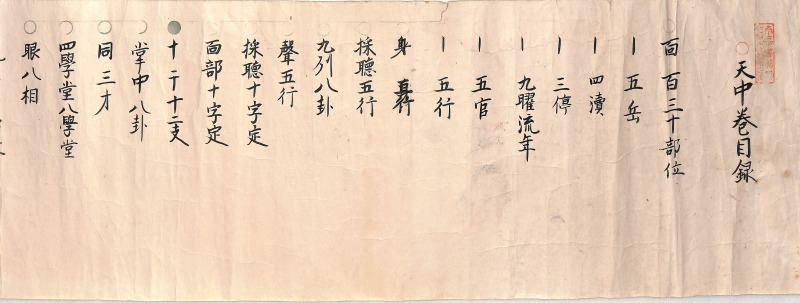 天中巻目録
面 百三十部位
｜ 五岳
｜ 四瀆
｜ 三停
｜ 九曜流年
｜ 五官
｜ 五行
身 五行
採聴五行
九列八卦
聲五行
採聴十字定
面部十字定
十干十二支
掌中八卦
同三才
四學堂八學堂
眼八相